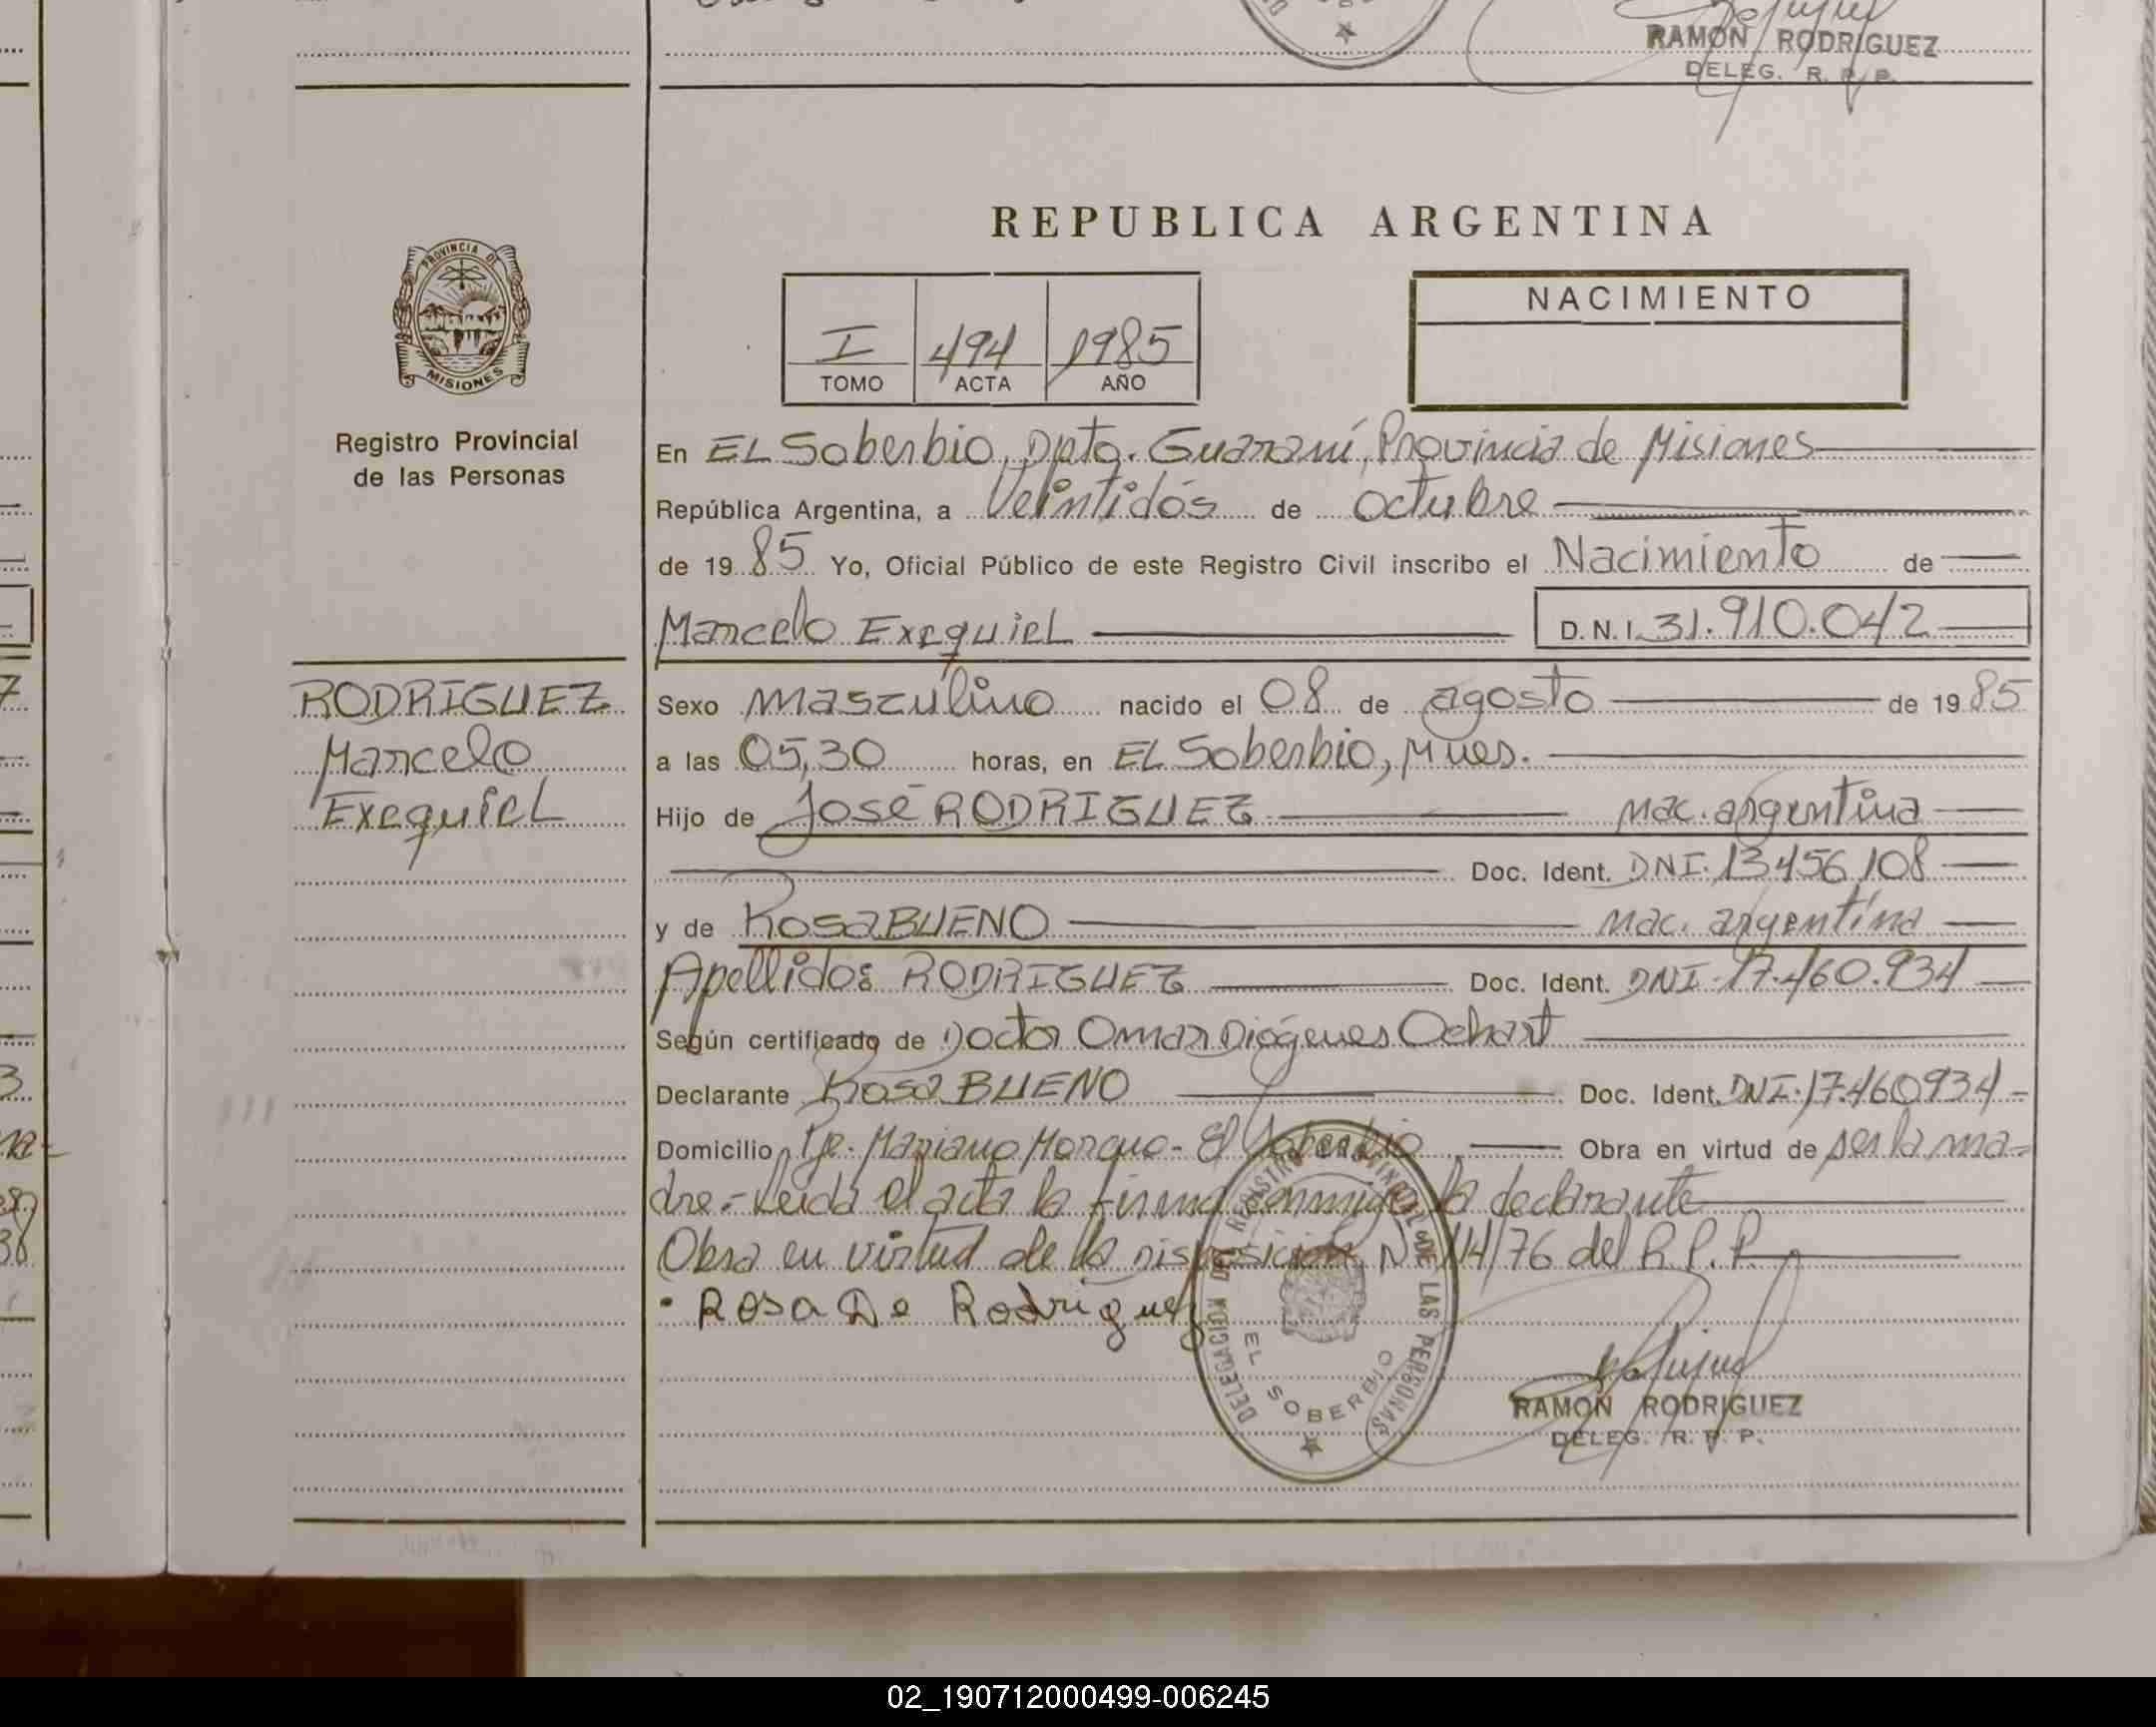 RAMON RODRIGUEZ
DELEG. R. P. P.
PROVINCIA DE
MISIONES
Registro Provincial
de las Personas
RODRIGUEZ
Marcelo
Exequiel
REPUBLICA ARGENTINA
I 494 1985
TOMO ACTA AÑO
NACIMIENTO
En EL Soberbio, Dpto. Guaraní, Provincia de Misiones
República Argentina, a Veintidós de octubre
de 1985 Yo, Oficial Público de este Registro Civil inscribo el Nacimiento de
Marcelo Exequiel D.N.I. 31.910.042
Sexo masculino nacido el 08 de agosto de 1985
a las 05,30 horas, en EL Soberbio, Mnes.
Hijo de José RODRIGUEZ nac. argentina
Doc. Ident. DNI. 13456108
y de Rosa BUENO nac. argentina
Apellido: RODRIGUEZ Doc. Ident. DNI. 17.460.934
Según certificado de Doctor Omar Diógenes Ochart
Declarante Rosa BUENO Doc. Ident. DNI. 17.460934
Domicilio Pje. Mariano Moreno - El Soberbio Obra en virtud de ser la ma-
dre.- Leída el acta la firma conmigo la declarante
Obra en virtud de la disposición Nº 114/76 del R.P.P.
Rosa De Rodriguez
DELEGACION DEL REGISTRO PROVINCIAL DE LAS PERSONAS
EL SOBERBIO
RAMON RODRIGUEZ
DELEG. R. P. P.
02_190712000499-006245